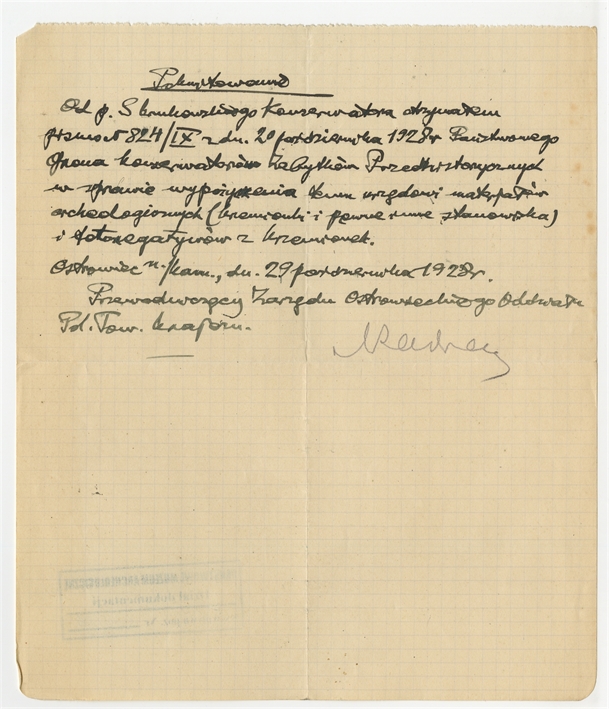 Pokwitowanie
Od p. S. Krukowskiego Konserwatora otrzymałem
pismo N 824/IX z dn. 20 października 1928 r. Państwowego
Grona konserwatorów Zabytków Przedhistorycznych
w sprawie wypożyczenia temu urzędowi materjałów
archeologicznych (krzemionki i pewne inne stanowiska)
i fotonegatywów z krzemionek.
Ostrowiec n./kam., dn. 29 października 1928 r.
Przewodniczący Zarządu Ostrowieckiego Oddziału
Pol. Tow. Krajozn.